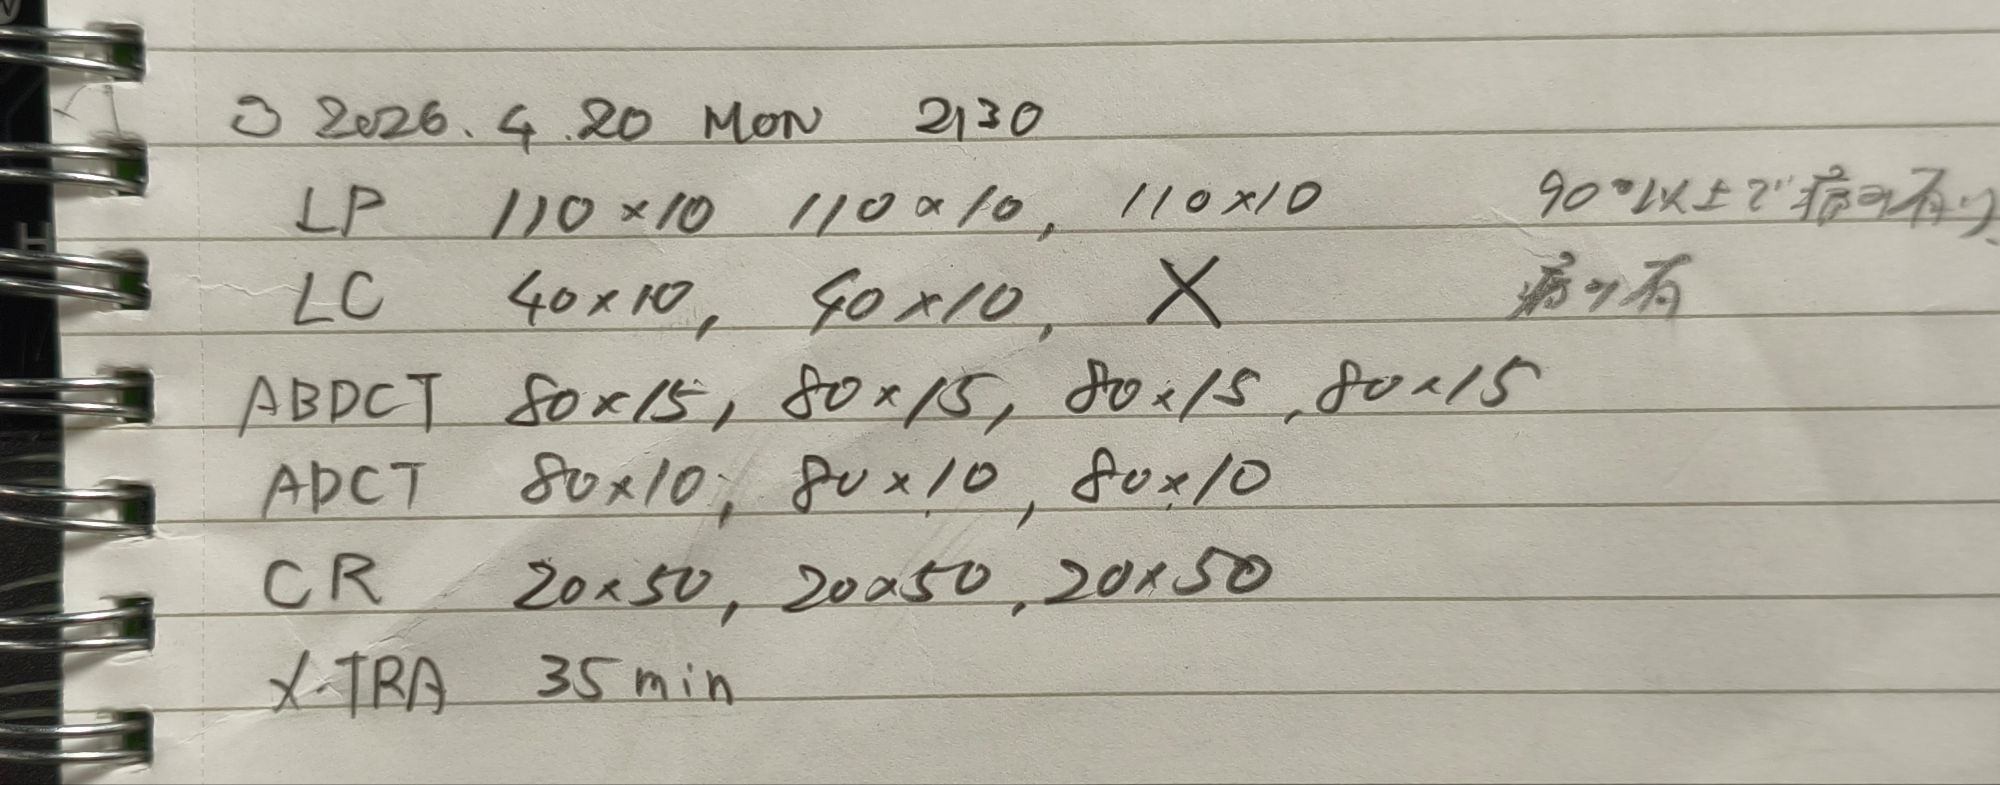 ③ 2026.4.20 MON 2130
LP 110×10 110×10, 110×10 90°以上で痛み有り
LC 40×10, 40×10, X 痛み有
ABDCT 80×15, 80×15, 80×15, 80×15
ADCT 80×10, 80×10, 80×10
CR 20×50, 20×50, 20×50
X-TRA 35min